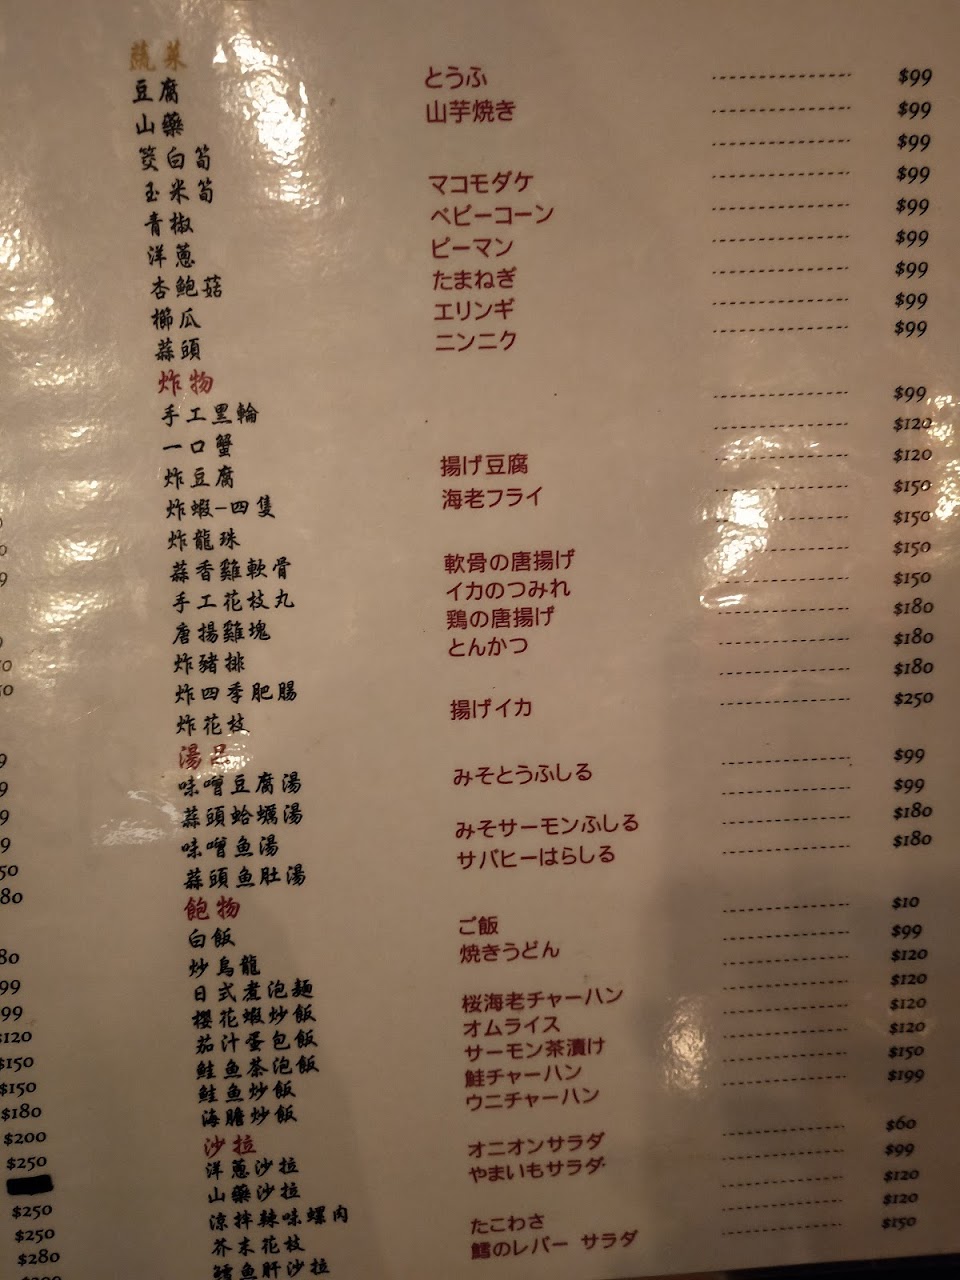 蔬菜
豆腐 とうふ ---------- $99
山藥 山芋焼き ---------- $99
筊白筍 ---------- $99
玉米筍 マコモダケ ---------- $99
青椒 ベビーコーン ---------- $99
洋蔥 ピーマン ---------- $99
杏鮑菇 たまねぎ ---------- $99
櫛瓜 エリンギ ---------- $99
蒜頭 ニンニク ---------- $99
炸物
手工黑輪 ---------- $99
一口蟹 ---------- $120
炸豆腐 揚げ豆腐 ---------- $120
炸蝦-四隻 海老フライ ---------- $150
炸龍珠 ---------- $150
蒜香雞軟骨 軟骨の唐揚げ ---------- $150
手工花枝丸 イカのつみれ ---------- $150
唐揚雞塊 鶏の唐揚げ ---------- $180
炸豬排 とんかつ ---------- $180
炸四季肥腸 ---------- $180
炸花枝 揚げイカ ---------- $250
湯品
味噌豆腐湯 みそとうふしる ---------- $99
蒜頭蛤蠣湯 ---------- $99
味噌魚湯 みそサーモンふしる ---------- $180
蒜頭魚肚湯 サバヒーはらしる ---------- $180
飽物
白飯 ご飯 ---------- $10
炒烏龍 焼きうどん ---------- $99
日式煮泡麵 ---------- $120
櫻花蝦炒飯 桜海老チャーハン ---------- $120
茄汁蛋包飯 オムライス ---------- $120
鮭魚茶泡飯 サーモン茶漬け ---------- $120
鮭魚炒飯 鮭チャーハン ---------- $150
海膽炒飯 ウニチャーハン ---------- $199
沙拉
洋蔥沙拉 オニオンサラダ ---------- $60
山藥沙拉 やまいもサラダ ---------- $99
涼拌辣味螺肉 ---------- $120
芥末花枝 たこわさ ---------- $120
鱈魚肝沙拉 鱈のレバー サラダ ---------- $150
$150
$150
$180
$200
$250
$250
$250
$280